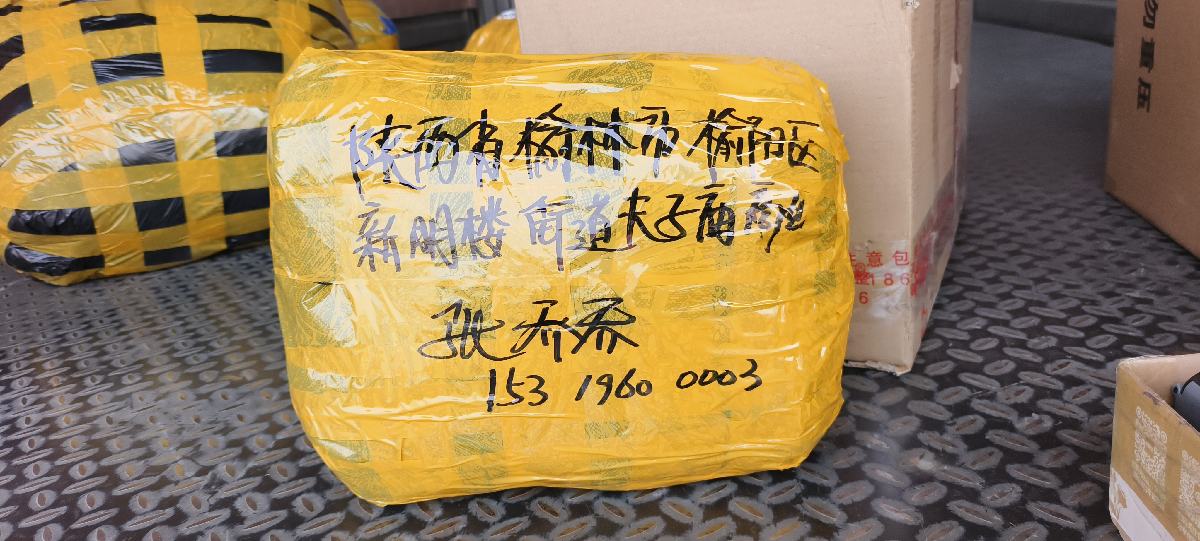 陕西省榆林市榆阳区
新明楼街道夫子庙
张乔乔
153 1960 0003
勿重压
意包
186
6